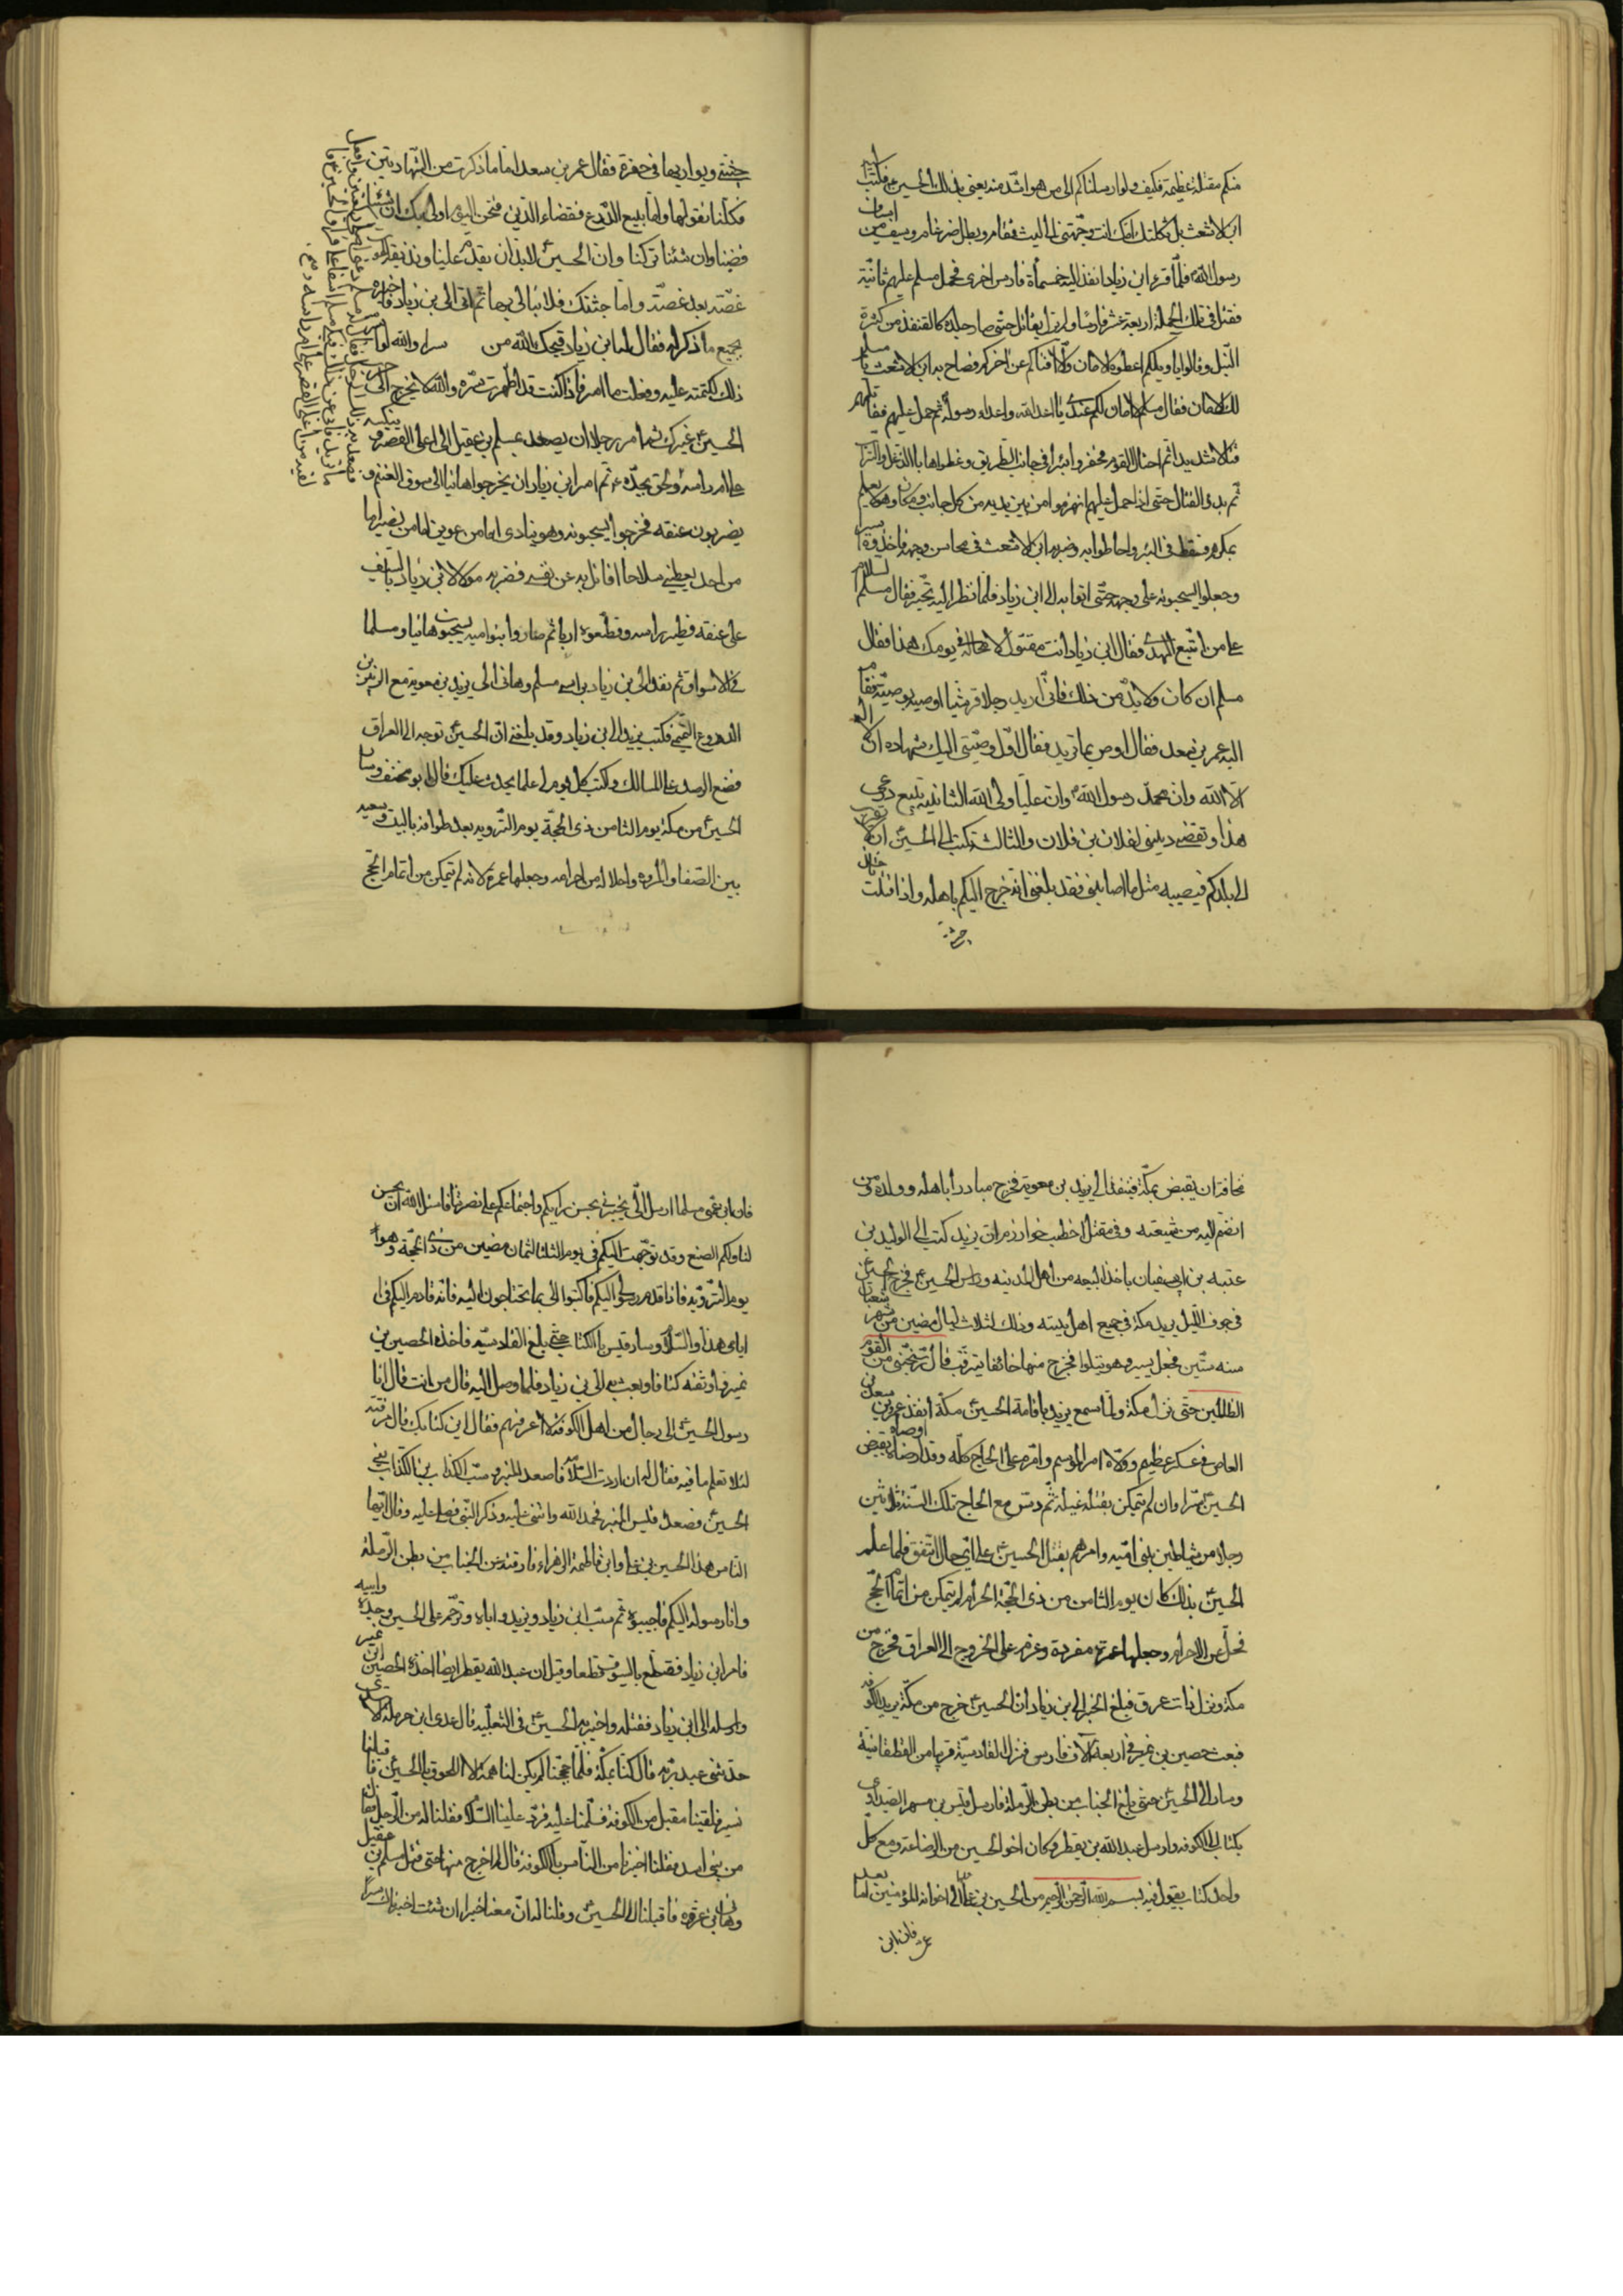 منكم مقتلة عظيمة فكيف ولو ارسلناكم الى من هو اشد منه يعنى بذلك الحسين ع فكتب اليه
ابن الاشعث بل ثكلتك امك انت وجهتنى الى ليث قمقام وبطل ضرغام وسيف من اسياف
رسول الله فلما قرء ابن زياد انفذ اليه خمسمأة فارس اخرى فحمل مسلم عليهم ثانية
فقتل فى تلك الحملة اربعة عشر فارسًا ولم يزل يقاتل حتى صار جلده كالقنفذ من كثرة
النبل وقالوا يا ويلكم اعطوه الامان والّا افناكم عن اخركم فصاح به ابن الاشعث يا مسلم
لك الامان فقال مسلم لا امان لكم عندى يا اعداء الله واعداء رسوله ثم حمل عليهم فقاتلهم
قتالا شديدا ثم احتال القوم فحفروا بئرا فى جانب الطريق وغطوها بالدغل والتراب
ثم بدؤ القتال حتى اذا حمل عليهم انهزموا من بين يديه من كل جانب ومكان وهو لا يعلم
بمكرهم فسقط فى البئر واحاطوا به وضربه ابن الاشعث فى محاسن وجهه فاخذوه اسيرا
وجعلوا يسحبونه على وجهه حتى اتوا به الى ابن زياد فلما نظر اليه تجبر فقال مسلم السلام
على من اتبع الهدى فقال ابن زياد انت مقتول لا محالة فى يومك هذا فقال
مسلم ان كان ولابد من ذلك فانى اريد رجلا قرشيا اوصيه بوصية فقام
اليه عمر بن سعد فقال اوص بما تريد فقال اول وصيتى اليك شهادة ان لا اله
الا الله وان محمدا رسول الله وان عليا ولى الله الثانية تبيع درعى
هذا وتقضى دينى لفلان بن فلان والثالث تكتب الى الحسين ان لا يغتر
الى بلدكم فيصيبه مثل ما اصابنى فقد بلغنى انه خرج اليكم باهله واذا قتلت خذ
جثتى
جثتى ويواريها فى حفرة فقال عمر بن سعد اما ما ذكرت من الشهادتين
فكلنا نقولها واما بيع الدرع فقضاء الدين فنحن اليوم اولى بك ان شئنا
قضينا وان شئنا تركنا وان الحسين لابد ان يقدم علينا ونذيقه الموت
غصّة بعد غصّة واما جثتك فلا نبالى بها ثم اتى الى بن زياد فاخبره
بجميع ما ذكر له فقال له ابن زياد قبحك الله من سرا والله لو
ذلك لكتمته عليه وفعلت ما امر فاذا كنت قد اظهرت سره والله لا يخرج الى حرب
الحسين غيرك ثم امر رجلا ان يصعد بمسلم بن عقيل الى اعلى القصر و ينكسه
على ام راسه ولحق بجده ع ثم امر ابن زياد ان يخرجوا هانيا الى سوق الغنم و
يضربون عنقه فخرجوا يسحبونه وهو ينادى اما من عوين اما من نصير اما
من احد يعطينى سلاحا اقاتل به عن نفسى فضربه مولا لابن زياد بالسيف
على عنقه فطير راسه وقطعوه اربا ثم صاروا بنو اميه يسحبون هانيا ومسلما
فى الاسواق ثم نفذ الى بن زياد براس مسلم وهانى الى يزيد بن معوية مع الزبير بن
الدروع التميمى فكتب يزيد الى بن زياد وقد بلغنى ان الحسين توجه الى العراق
فضع الرصد على المسالك واكتب كل يوم لى علما يحدث عليك قال ابو مخنف وسار
الحسين من مكة يوم الثامن ذى الحجة يوم الترويه بعد طوافه بالبيت وسعيه
بين الصفا والمروه واحلاله من احرامه وجعلها عمرة لانه لم يتمكن من اتمام الحج
مخافة ان يقبض بمكة فينفذ الى يزيد بن معوية فخرج مبادرا باهله وولده ومن
انضم اليه من شيعته وفى مقتل اخطب خوارزم ان يزيد كتب الى الوليد بن
عتبة بن ابى سفيان ياخذ البيعه من اهل المدينه وراس الحسين ع فخرج الحسين
فى جوف الليل يريد مكة فى جميع اهل بيته وذلك لثلاث ليال مضين من شهر شعبان
سنه ستين فجعل يسير وهو يتلوا فخرج منها خائفا يترقب قال رب نجنى من القوم
الظالمين حتى نزل مكة ولما سمع يزيد باقامة الحسين مكة انفذ عمرو بن سعد بن
العاص فى عسكر عظيم وولاه امر الموسم وامره على الحاج كله وقد اوصاه بقبض
الحسين سرا وان لم يتمكن بقتله غيلة ثم دس مع الحاج تلك السنة ثلاثين
رجلا من شياطين بنى اميه وامرهم بقتل الحسين على اى حال اتفق فلما علم
الحسين بذلك كان يوم الثامن من ذى الحجة الحرام لم يتمكن من اتمام الحج
فحل عن الاحرام وجعلها عمرة مفردة وعزم على الخروج الى العراق فخرج من
مكة ونزل ذات عرق فبلغ الخبر الى بن زياد ان الحسين خرج من مكة يريد الكوفه
فبعث حصين بن نمير فى اربعة آلاف فارس فنزل القادسية قريبا من القطقطانية
وسار الى الحسين حتى بلغ الجناب من بطن الرملة فارسل قيس بن مسهر الصيداوى
بكتاب الى الكوفه وارسل عبد الله بن يقطر وكان اخو الحسين من الرضاعة ومع كل
واحد كتاب يقول فيه بسم الله الرحمن الرحيم من الحسين بن على الى اخوانه المؤمنين اما بعد
فان ابن
فان ابن عمى مسلما ارسل الى يخبرنى بحسن رايكم واجتماعكم على نصرتنا فاسئل الله ان يحسن
لنا ولكم الصنع وقد توجهت اليكم فى يوم الثلثا لثمان مضين من ذى الحجة وهو
يوم التروية فاذا قدم رسولى اليكم فاكتبوا الى بما تحتاجون اليه فانه قادم اليكم فى
ايامى هذه والسلام وسار قيس بالكتاب حتى بلغ القادسيه فاخذه الحصين بن
نمير فاوثقه كتافا وبعث به الى بن زياد فلما وصل اليه قال من انت قال انا
رسول الحسين الى رجال من اهل الكوفة لا اعرفهم فقال اين كتابك قال مزقته
لئلا تعلم ما فيه فقال له ان اردت السلامة فاصعد المنبر وسب الكذاب بن الكذاب يعنى
الحسين فصعد قيس المنبر فحمد الله واثنى عليه وذكر النبى فصلى عليه وقال ايها
الناس هذا الحسين بن على وابن فاطمة الزهراء فارقته عن الجناب من بطن الرملة
وانا رسوله اليكم فاجيبوه ثم سب ابن زياد ويزيد واباه وترحم على الحسين وجده وابيه
فامر ابن زياد فقطع بالسيوف قطعا وقيل ان عبد الله يقطر ايضا اخذه الحصين ابن نمير
وارسله الى ابن زياد فقتله واخبر الحسين فى الثعلبيه قال عدى ابن حرملة الاسدى
حدثنى عبد ربه قال كنا بمكة فلما حججنا لم يكن لنا همة الا اللحوق بالحسين فاقبلنا
نسير فلقينا مقبل من الكوفة فسلمنا عليه فرد علينا السلام فقلنا له من الرجل فقال
من بنى اسد فقلنا اخبرنا من الناس بالكوفة قال لم اخرج منها حتى قتل مسلم بن عقيل
وهانى بن عروه فاقبلنا الى الحسين وقلنا له ان معنا خبرا ان شئت اخبرناك سرا